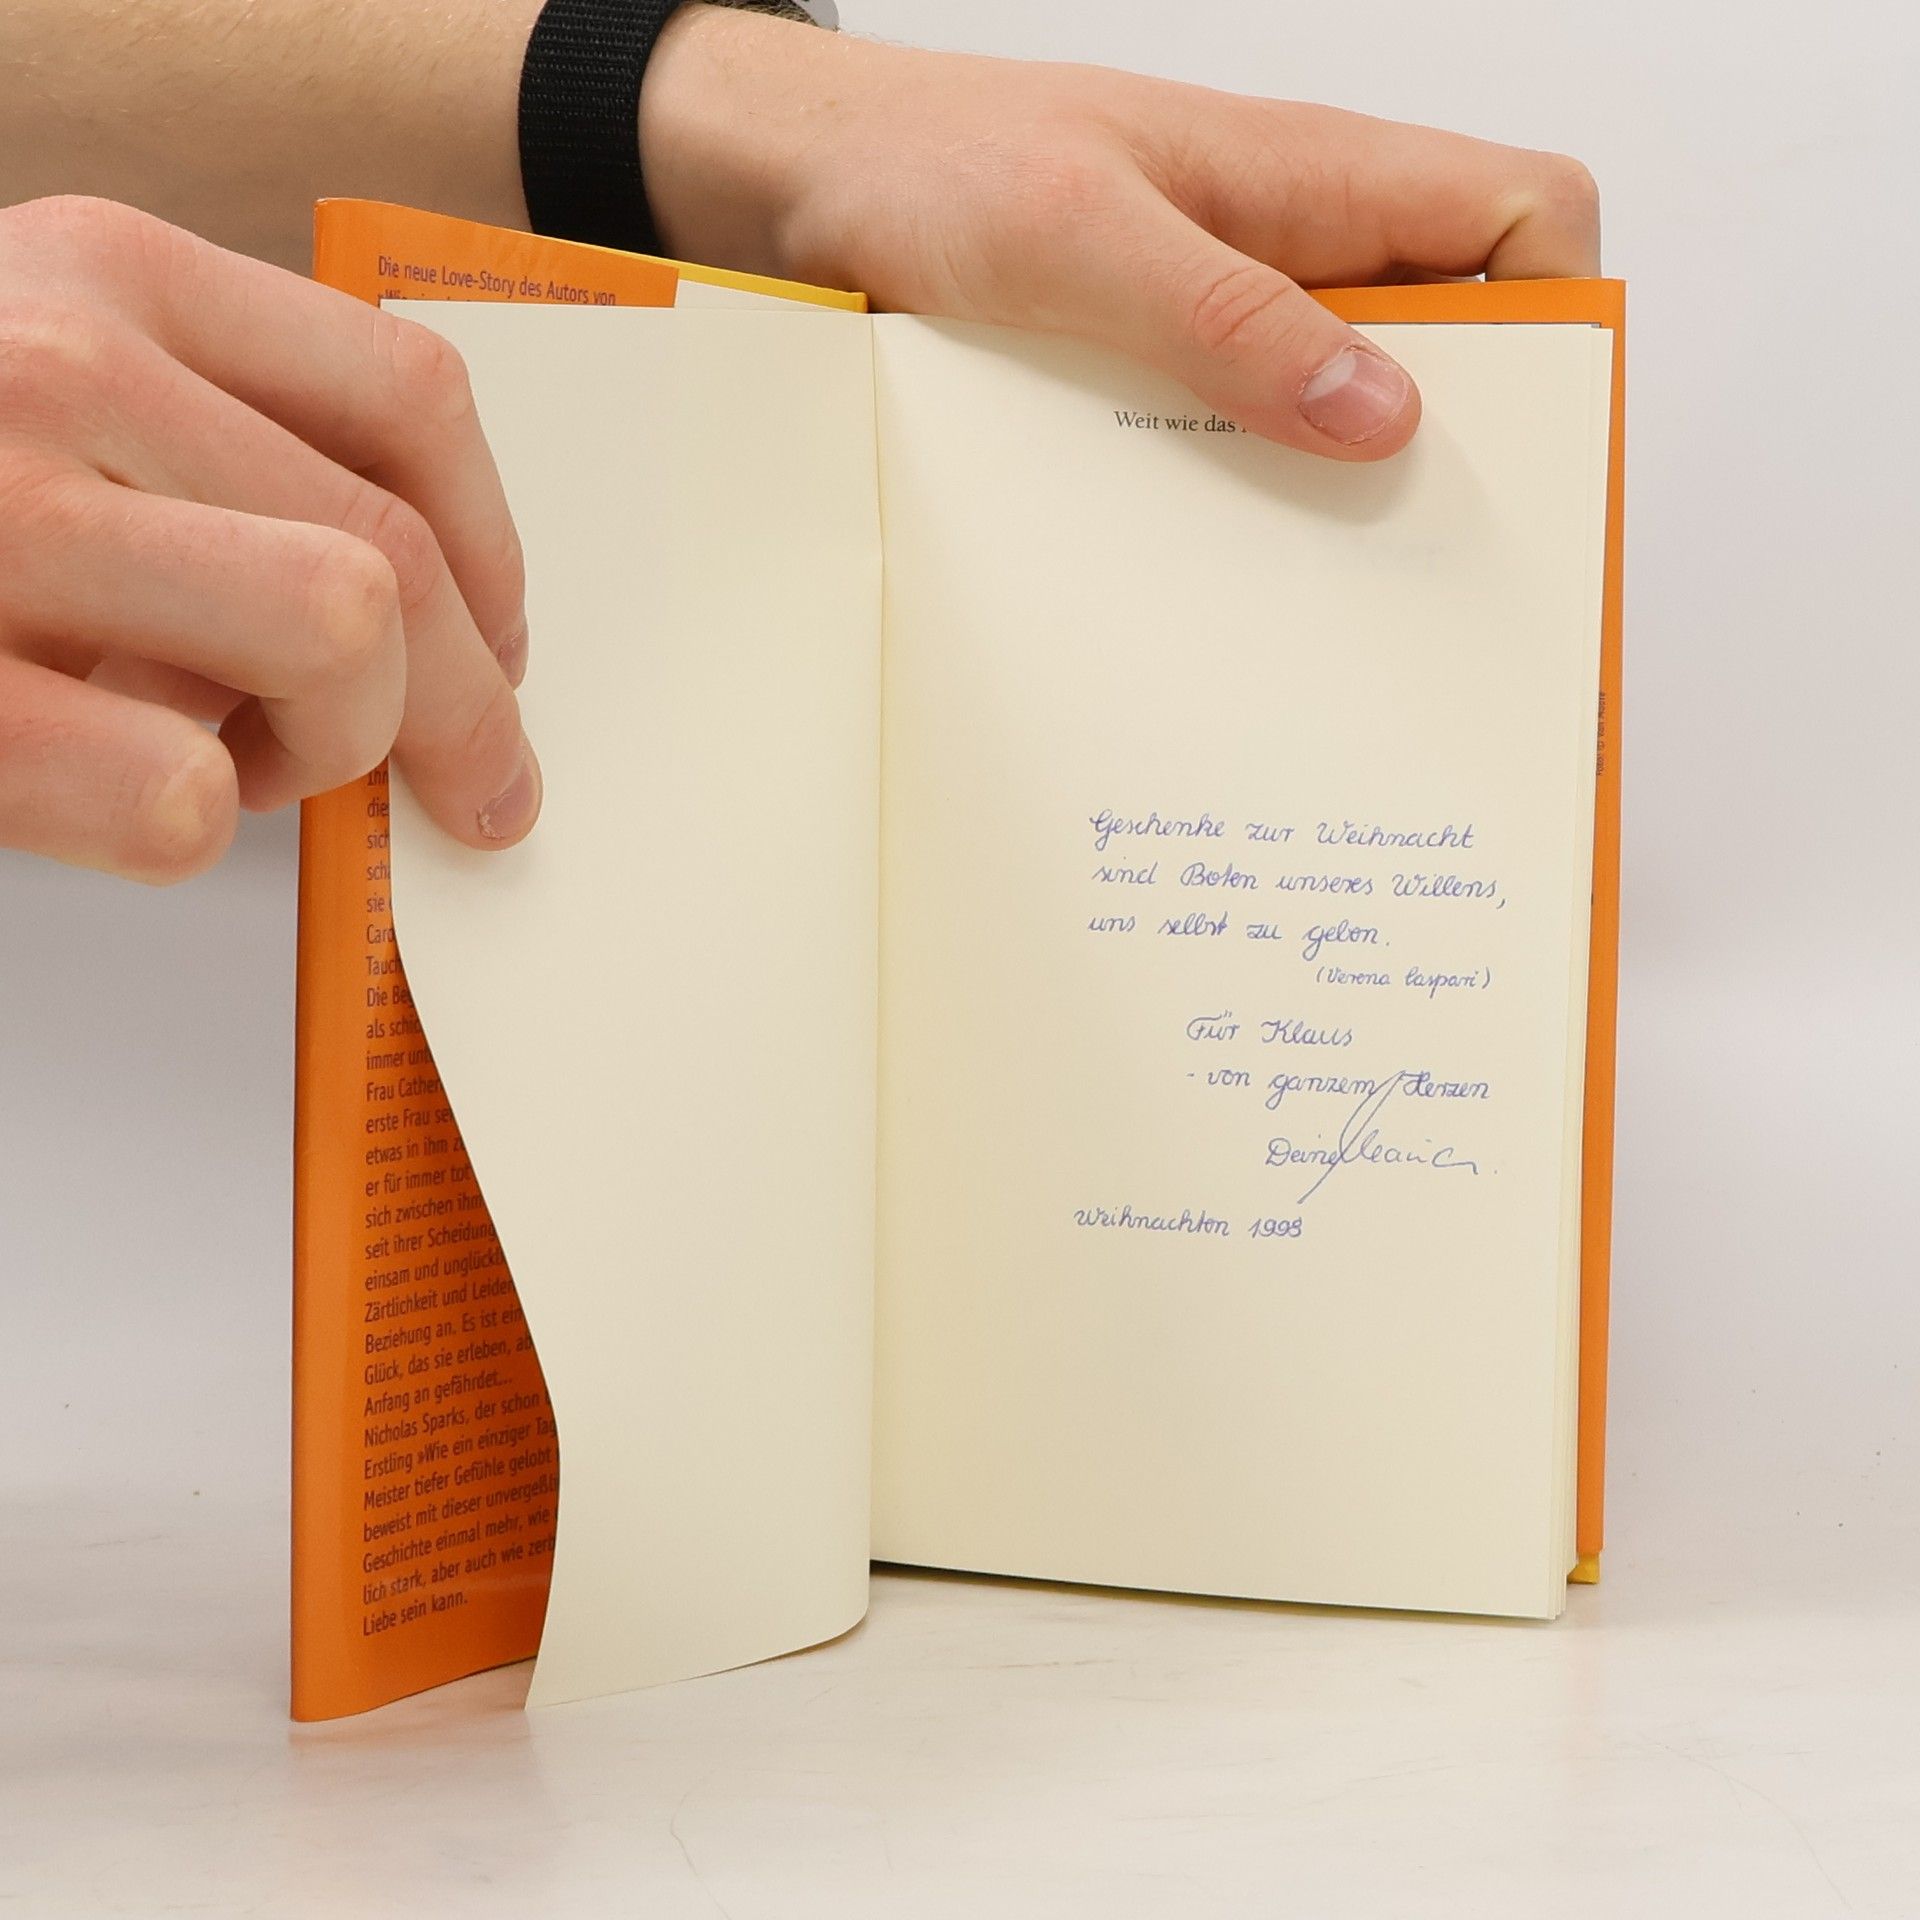 Die neue Love-Story des Autors von
Ihr
die
sich
sch
sie
Caro
Tauch
Die Be
als schic
immer un
Frau Cather
erste Frau se
etwas in ihm z
er für immer tot
sich zwischen ihn
seit ihrer Scheidung
einsam und unglückl
Zärtlichkeit und Leiden
Beziehung an. Es ist ein
Glück, das sie erleben, ab
Anfang an gefährdet...
Nicholas Sparks, der schon
Erstling »Wie ein einziger Tag
Meister tiefer Gefühle gelobt
beweist mit dieser unvergeßli
Geschichte einmal mehr, wie
lich stark, aber auch wie zerb
Liebe sein kann.
Weit wie das
Geschenke zur Weihnacht
sind Boten unseres Willens,
uns selbst zu geben.
(Verena Caspari)
Für Klaus
- von ganzem Herzen
Deine
Weihnachten 1998